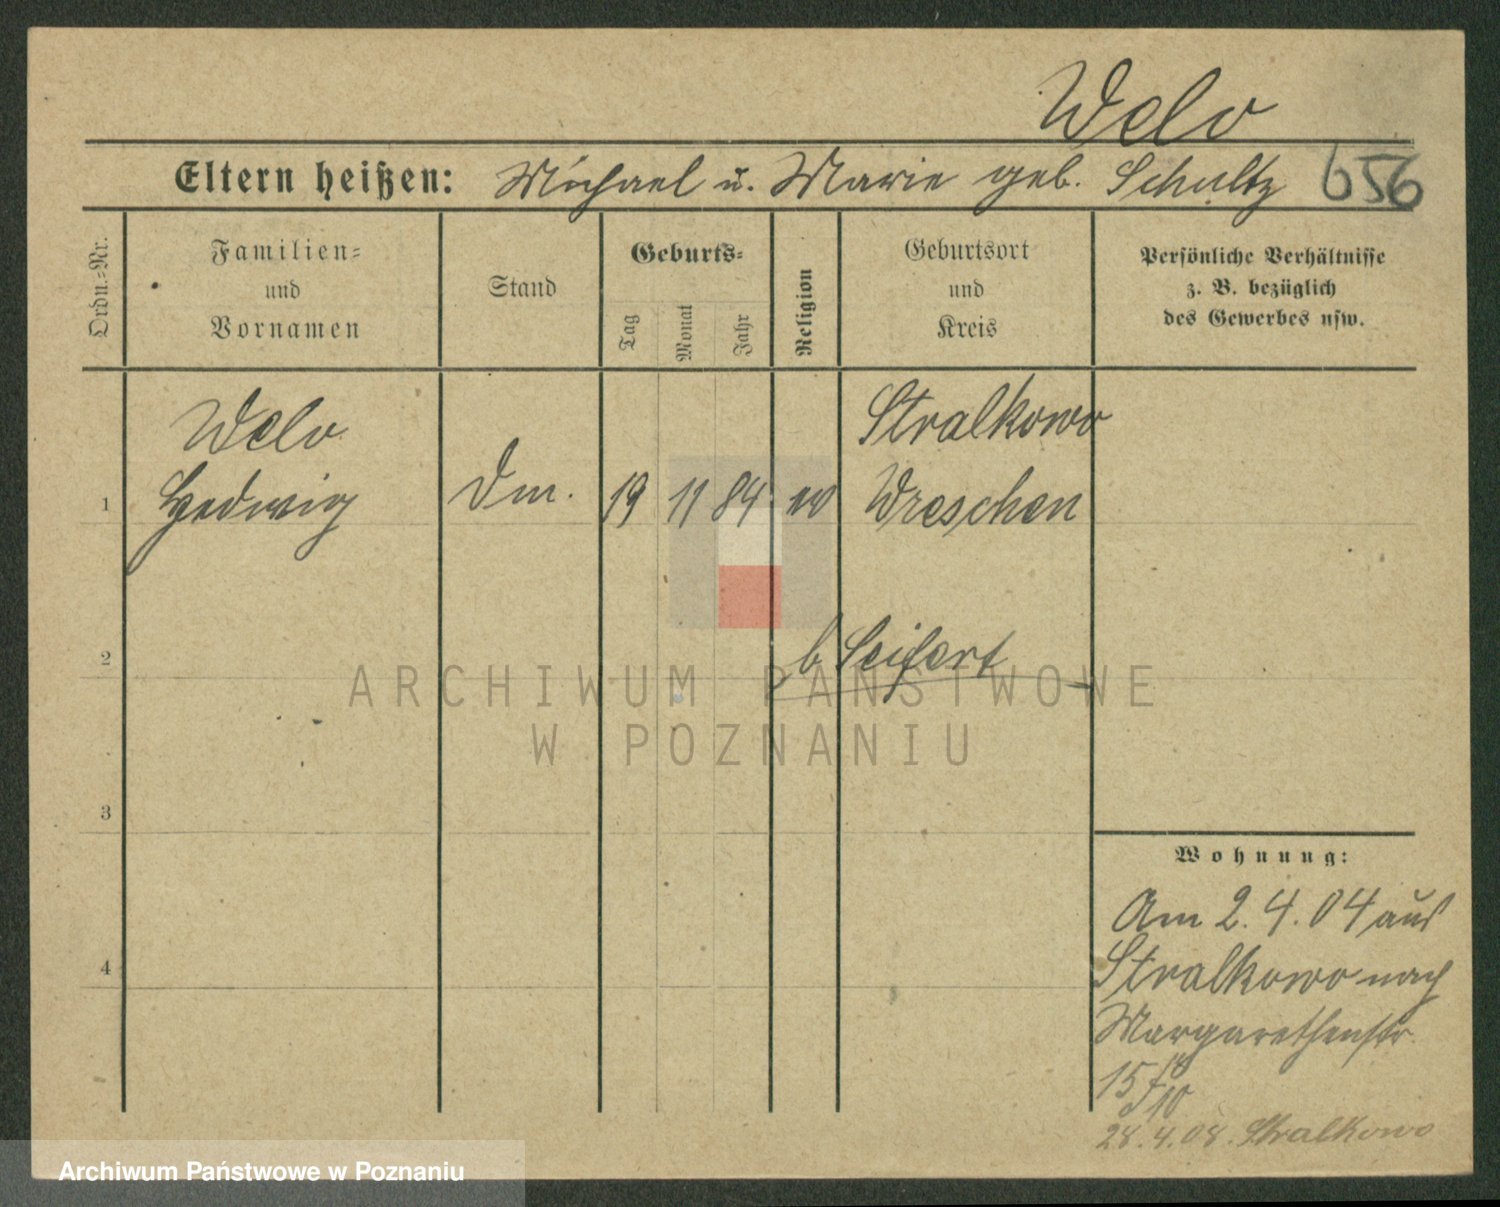 Welo
Eltern heißen: Michael u. Marie geb. Schultz 656
Ordn.-Nr.
Familien-
und
Vornamen
Stand
Geburts-
Tag
Monat
Jahr
Religion
Geburtsort
und
Kreis
Persönliche Verhältnisse
z. B. bezüglich
des Gewerbes usw.
Welo
Hedwig
1
Dm.
19 11 84
Stralkowo
Wreschen
2
b Seifert
3
4
Wohnung:
Am 2.4.04 aus
Stralkowo nach
Margarethenstr.
15
28.4.08. Stralkowo
ARCHIWUM PAŃSTWOWE
W POZNANIU
Archiwum Państwowe w Poznaniu